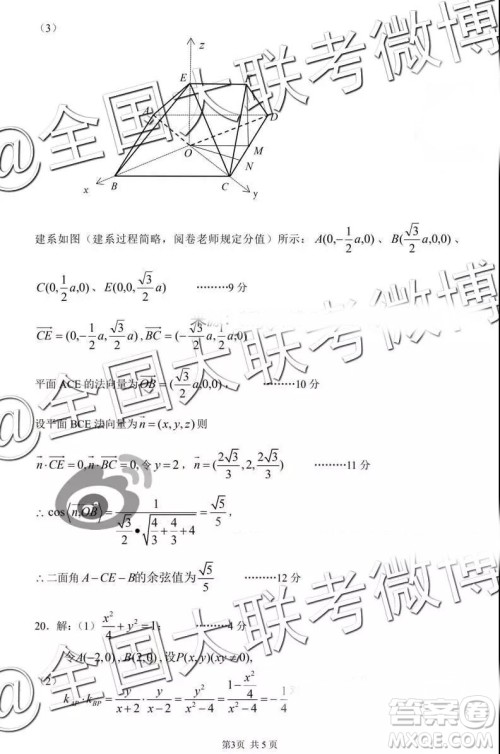 (3)
z
E
A
D
O
M
N
x
B
C
y
建系如图（建系过程简略，阅卷老师规定分值）所示：A(0,-1/2 a,0)、B(√3/2 a,0,0)、
C(0,1/2 a,0)、E(0,0,√3/2 a) ………9 分
CE=(0,-1/2 a,√3/2 a),BC=(-√3/2 a,1/2 a,0)
平面 ACE 的法向量为OB=(√3/2 a,0,0)， ………10 分
设平面 BCE 法向量为n=(x,y,z)则
n·CE=0,n·BC=0,令 y=2，n=(2√3/3,2,2√3/3) ………11 分
∴cos⟨n,OB⟩=1/(√3/2•√(4/3+4/3+4))=√5/5，
∴二面角 A-CE-B的余弦值为√5/5 ………12 分
20. 解：（1）x²/4+y²=1; ………4 分
（2）令A(-2,0),B(2,0),设P(x,y)(xy≠0),
k_AP·k_BP=y/(x+2)·y/(x-2)=y²/(x²-4)=(1-x²/4)/(x²-4)=-1/4
第3页 共5页
@全国大联考微博
@全国大联考微博
@全国大联考微博
答案圈
MXQE.COM